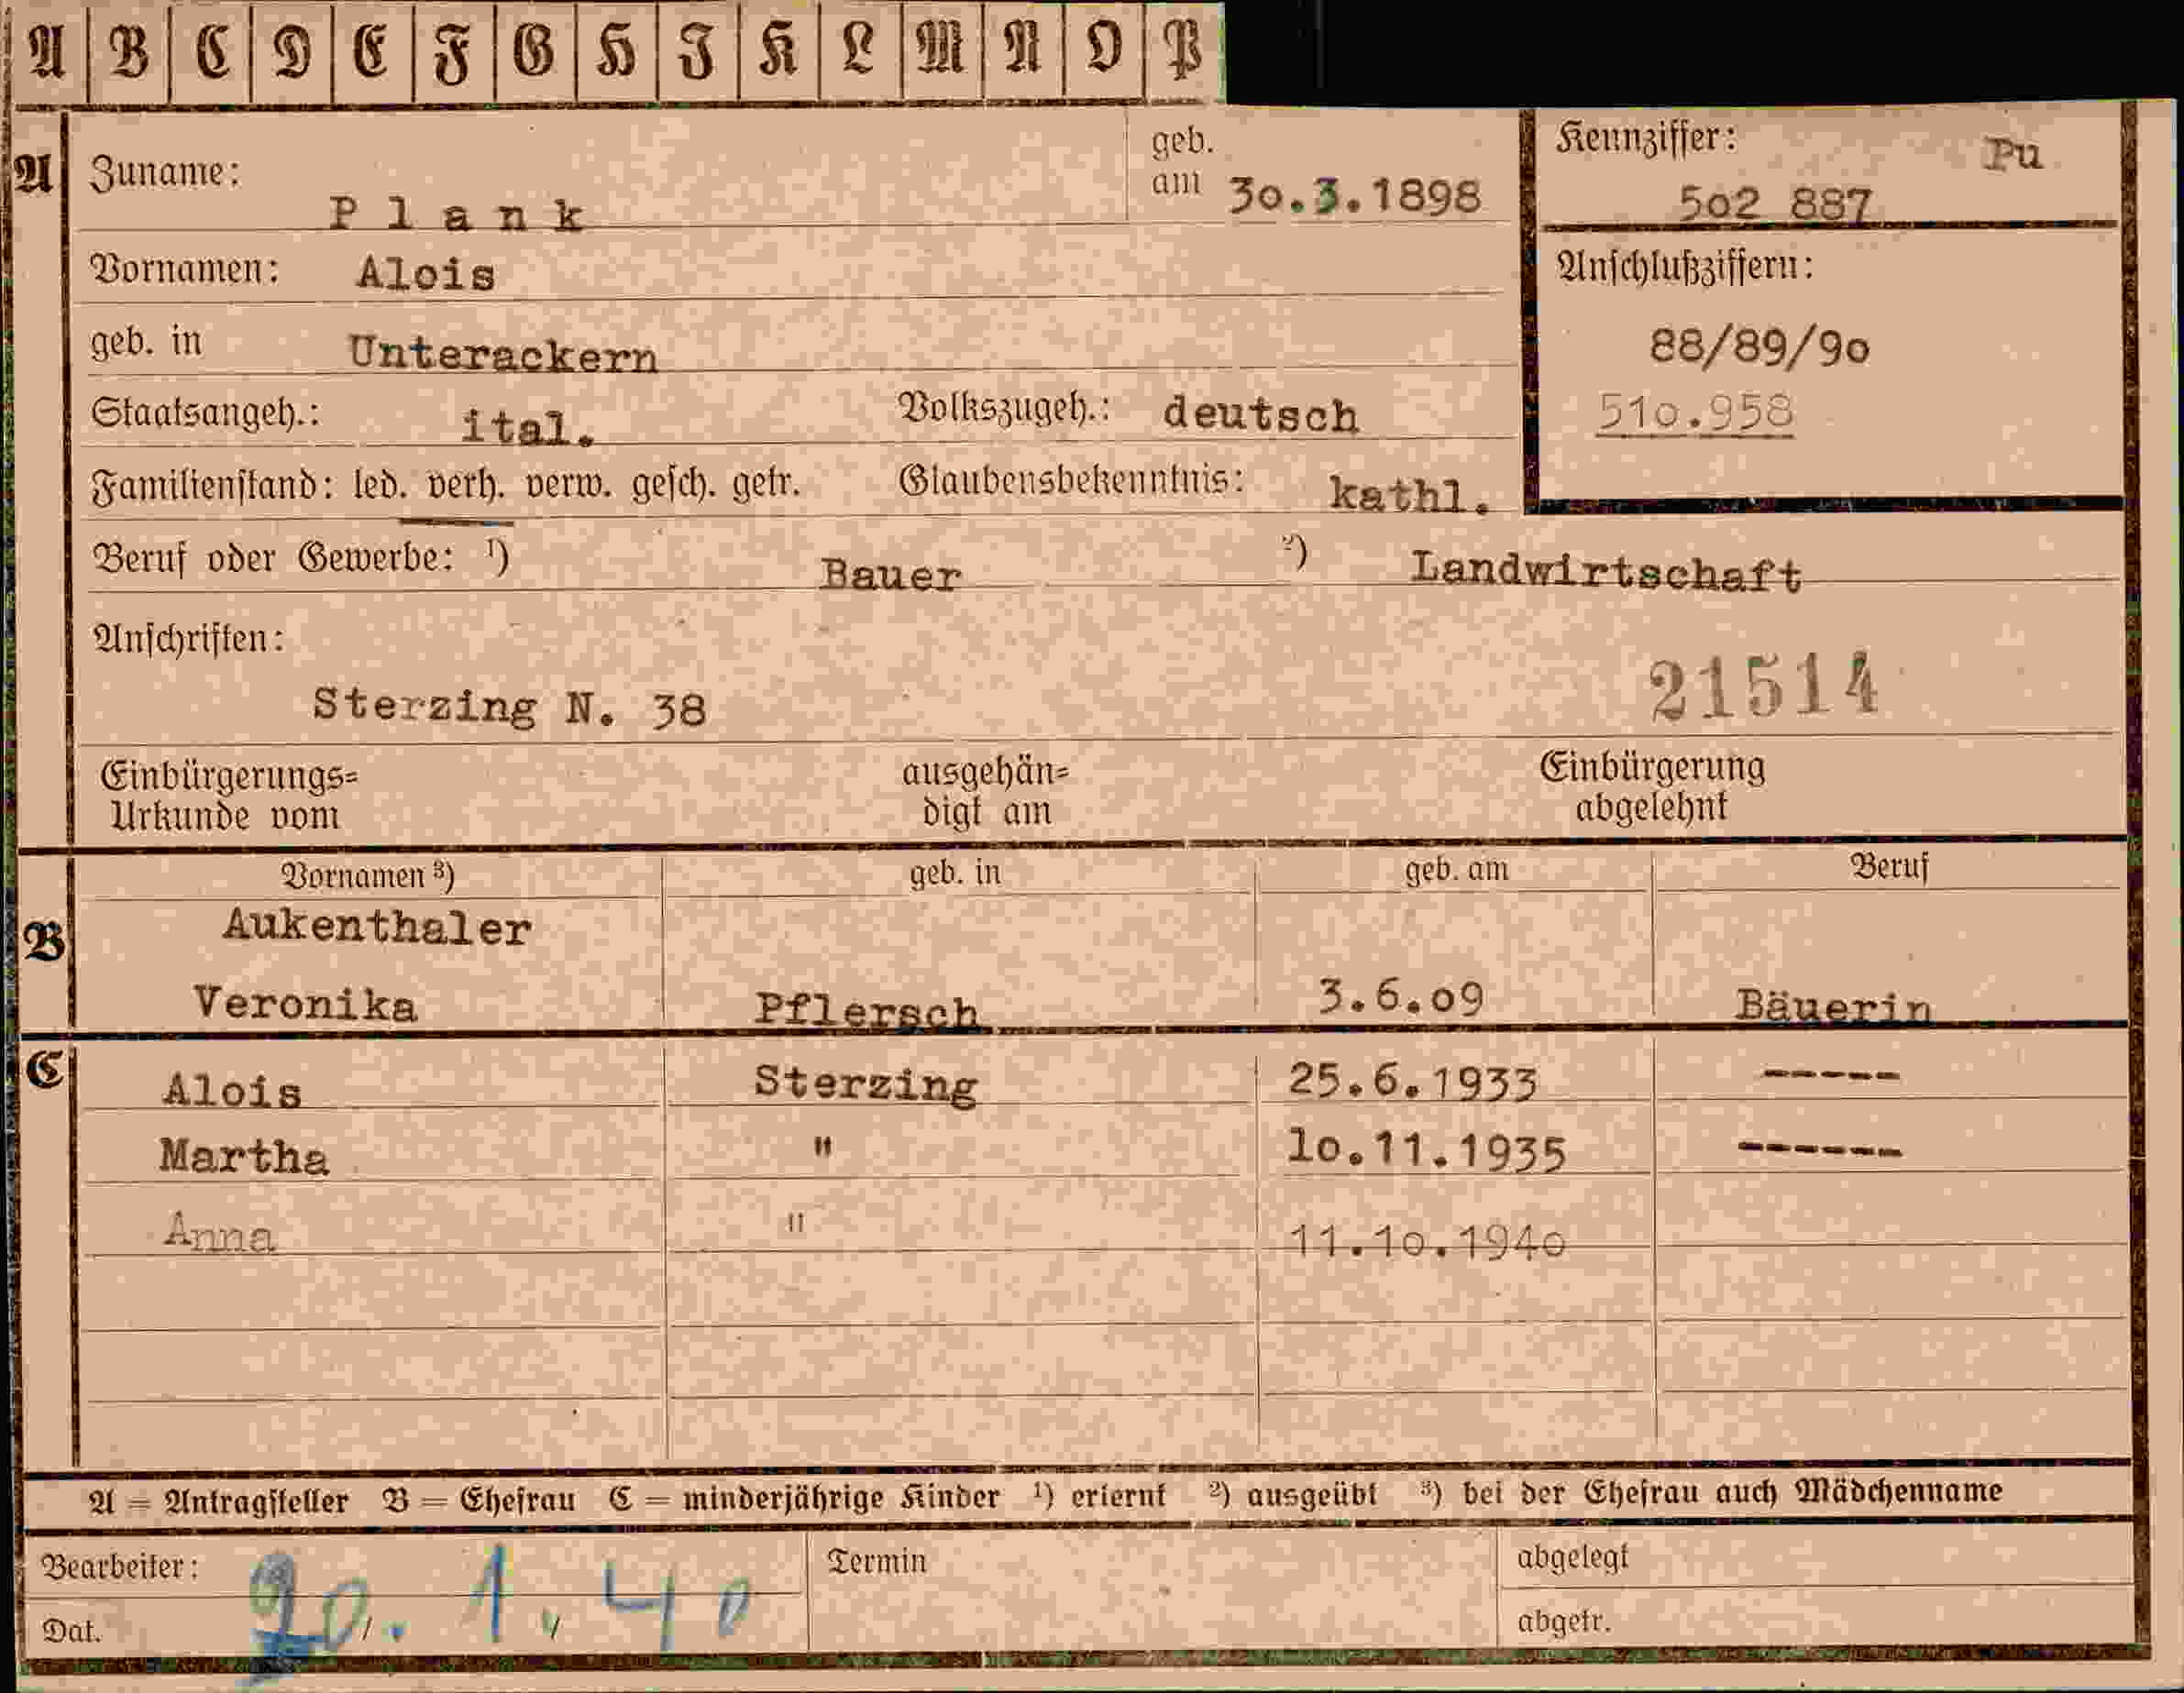 A B C D E F G H J K L M N O P
A Zuname: Plank geb. am 30.3.1898
Kennziffer: Pu
502 887
Vornamen: Alois
Anschlußziffern:
88/89/90
510.958
geb. in Unterackern
Staatsangeh.: ital. Volkszugeh.: deutsch
Familienstand: led. verh. verw. gesch. getr. Glaubensbekenntnis: kathl.
Beruf oder Gewerbe: ¹) Bauer ²) Landwirtschaft
Anschriften:
21514
Sterzing N. 38
Einbürgerungs= Urkunde vom ausgehän= digt am Einbürgerung abgelehnt
Vornamen ³) geb. in geb. am Beruf
B Aukenthaler
Veronika Pflersch 3.6.09 Bäuerin
C Alois Sterzing 25.6.1933 -----
Martha " 10.11.1935 ------
Anna " 11.10.1940
A = Antragsteller B = Ehefrau C = minderjährige Kinder ¹) erlernt ²) ausgeübt ³) bei der Ehefrau auch Mädchenname
Bearbeiter: Termin abgelegt
Dat. 20. 1. 40 abgetr.